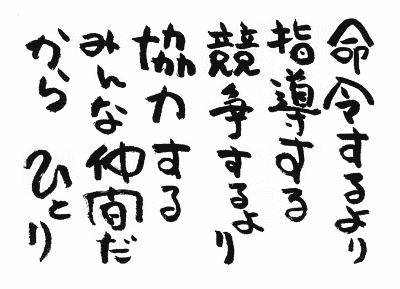 命令するより
指導する
競争するより
協力する
みんな仲間だ
から ひとり